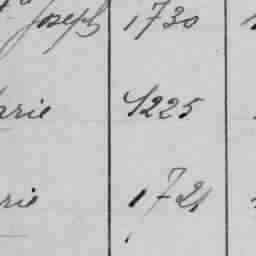 Joseph 1730
arie 1225
rie 1721